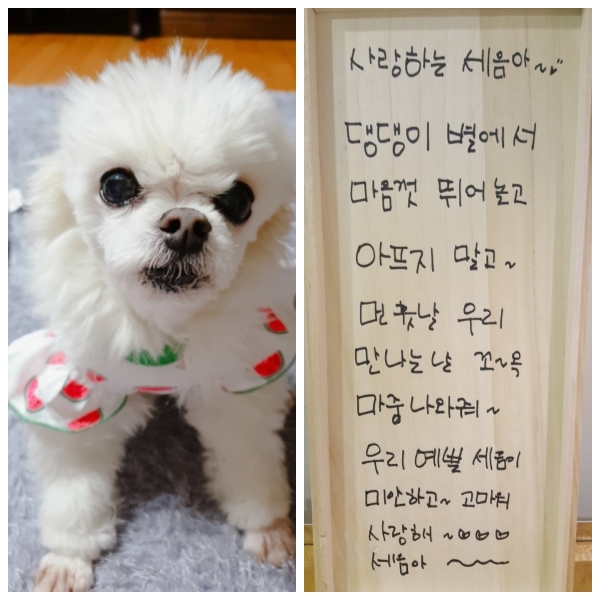 사랑하는 세음아~
댕댕이 별에서
마음껏 뛰어놀고
아프지 말고~
먼훗날 우리
만나는 날 꼬~옥
마중나와줘~
우리 예쁠 세음이
미안하고~ 고마워
사랑해 ~♡♡♡
세음아 ~~~